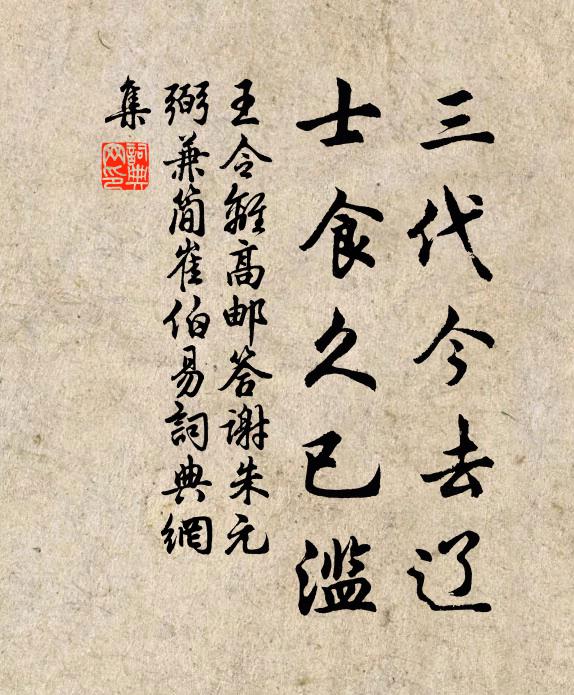 三代今去辽
士食久已滥
王令離高邮答谢朱元
弼兼简崔伯易詞典網
集
詞典網印